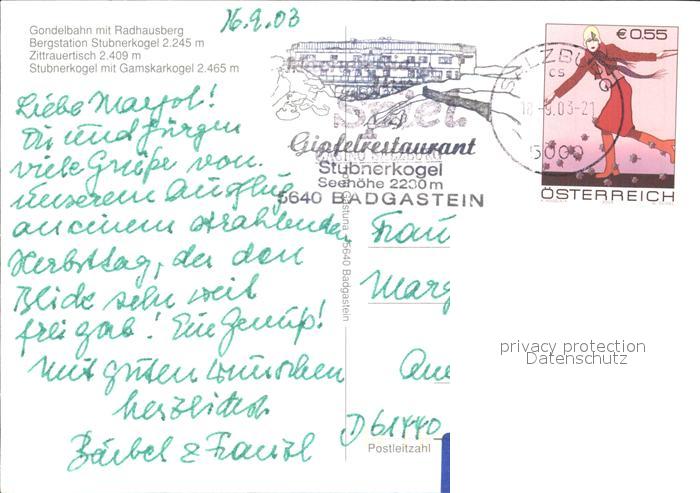 16.9.03
Gondelbahn mit Radhausberg
Bergstation Stubnerkogel 2.245 m
Zittrauertisch 2.409 m
Stubnerkogel mit Gamskarkogel 2.465 m
Liebe Margot!
Dir und Jürgen
viele Grüße von
unserem Ausflug
an einem strahlenden
Herbsttag, der den
Blick sehr weit
frei gab! Ein Genuß!
Mit guten Wünschen
herzlichst
Bärbel & Franzl
Gipfelrestaurant
Stubnerkogel
Seehöhe 2230 m
5640 BADGASTEIN
SALZBURG
18.9.03-21
€ 0.55
ÖSTERREICH
5640 Badgastein
Frau
Marg
Que
D 61440
Postleitzahl
privacy protection
Datenschutz